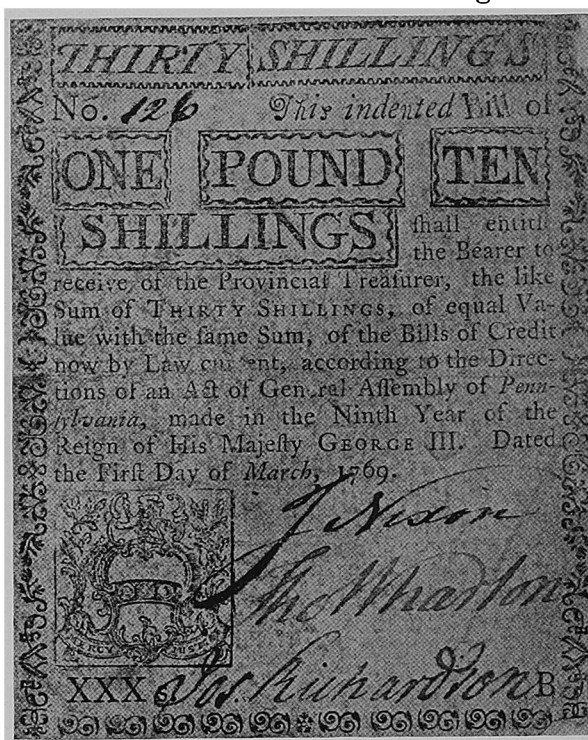 THIRTY SHILLINGS
No. 126 This indented Bill of
ONE POUND TEN
SHILLINGS ſhall entitle
the Bearer to
receive of the Provincial Treaſurer, the like
Sum of THIRTY SHILLINGS, of equal Va-
lue with the ſame Sum, of the Bills of Credit
now by Law current, according to the Direc-
tions of an Act of General Aſſembly of Penn-
ſylvania, made in the Ninth Year of the
Reign of His Majeſty GEORGE III. Dated
the Firſt Day of March, 1769.
J Nixon
Tho Wharton
MERCY JUSTICE
XXX s Jos. Richardson B